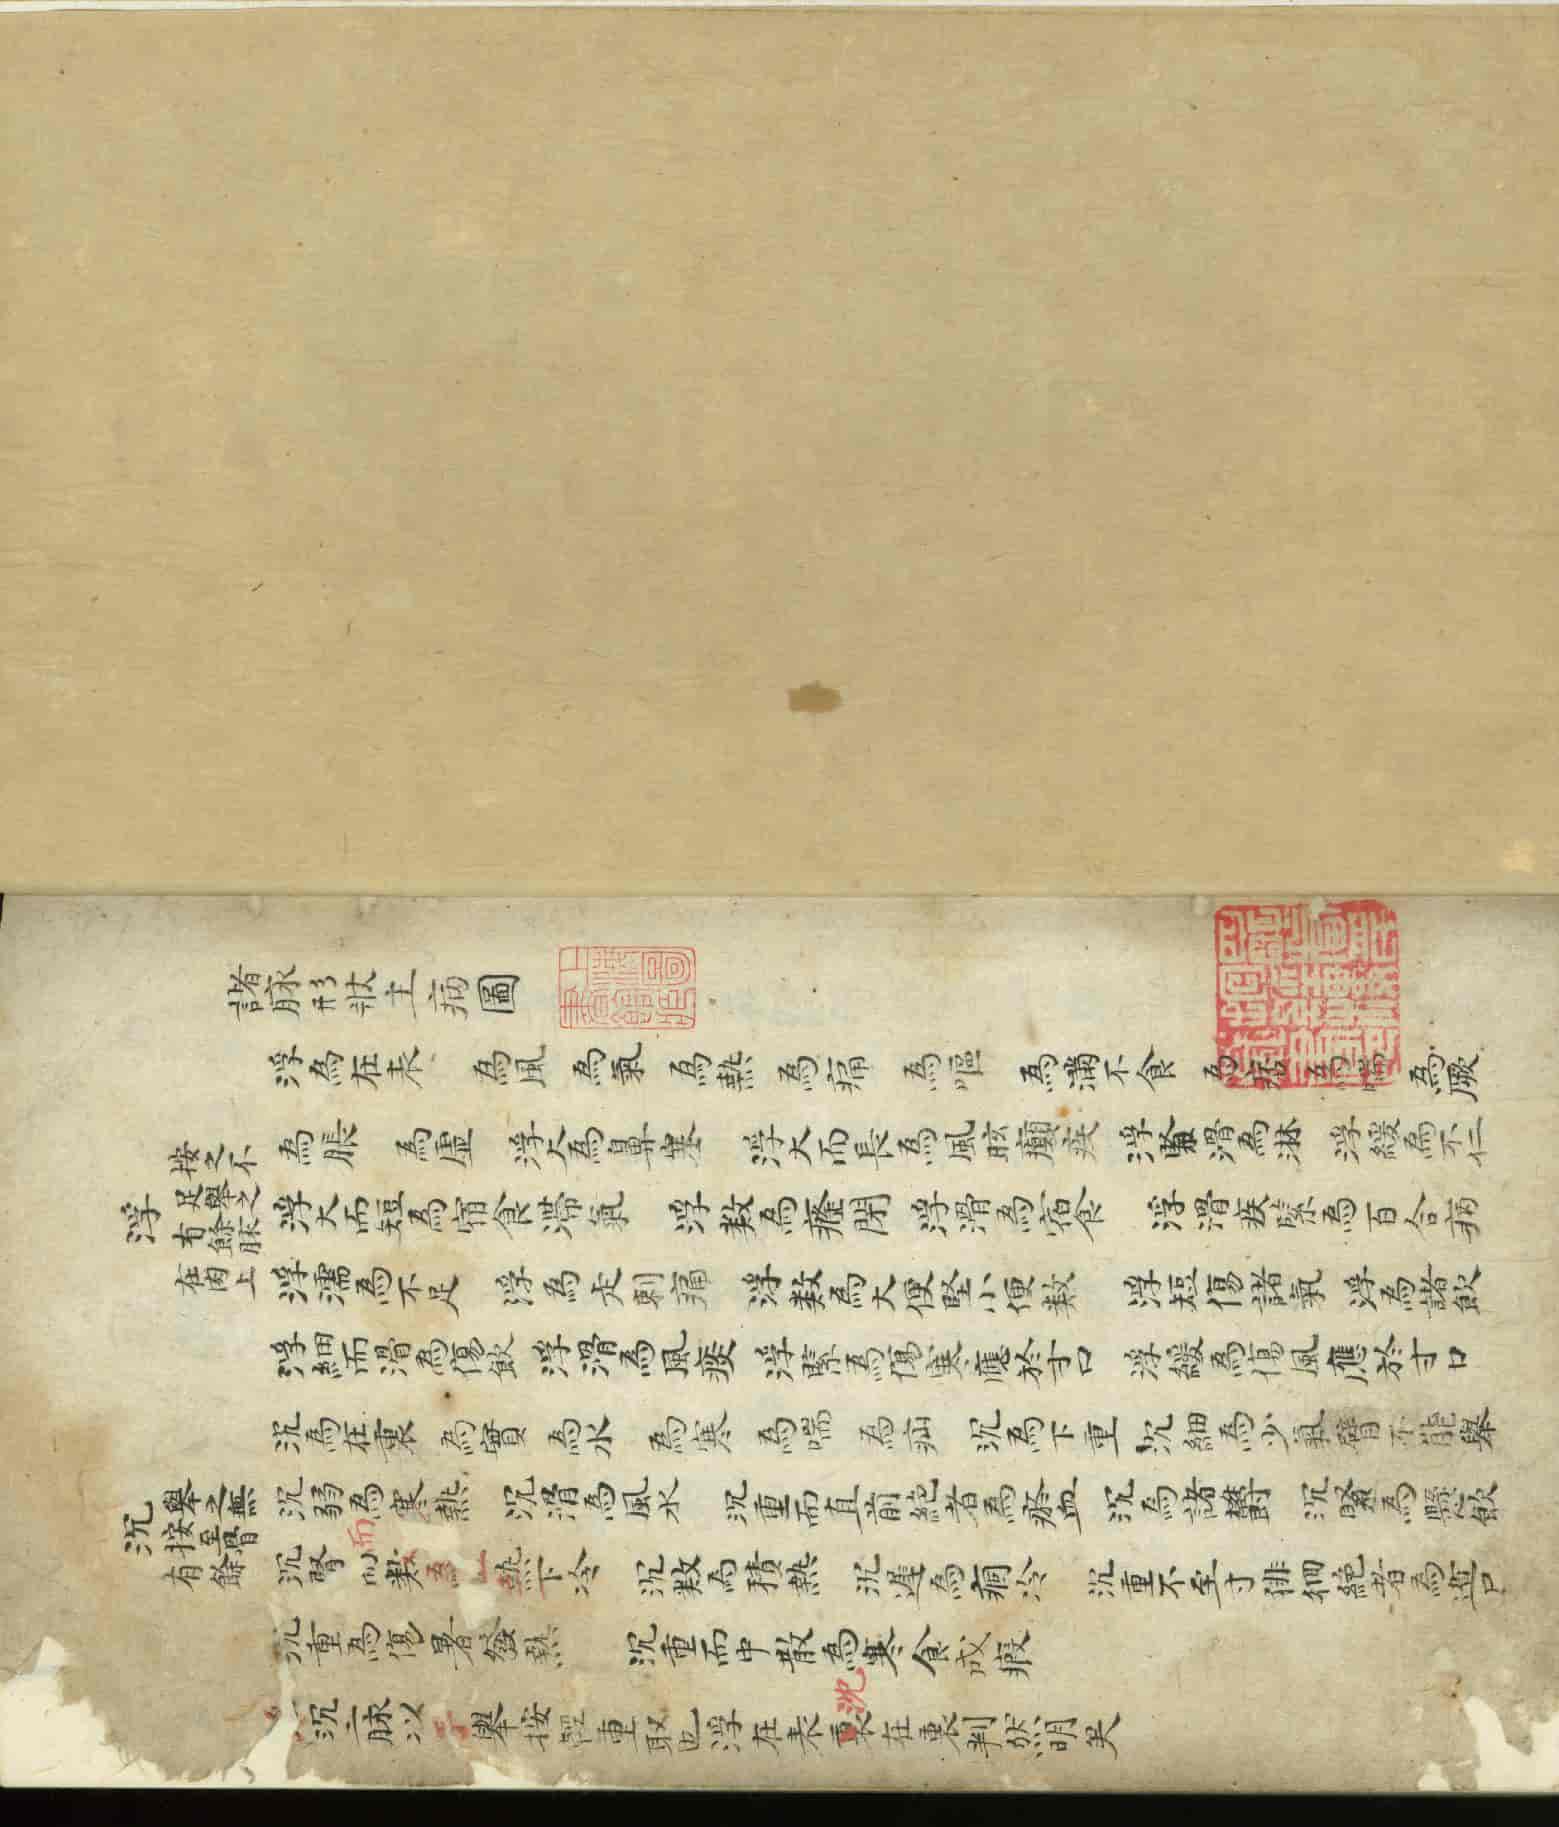 諸脉形狀主病圖
浮為在表 為風 為氣 為熱 為痛 為嘔 為滿不食 為痞 為喘 為厥
浮
按之不足舉之有餘脉在肉上
為脹 為虛 浮大為鼻塞 浮大而長為風眩癲疾 浮緊滑為淋 浮緩為不仁
浮大而短為宿食滯氣 浮数為癃閉 浮滑為宿食 浮滑疾緊為百合病
浮濡為不足 浮為走刺痛 浮数為大便堅小便数 浮短傷諸氣 浮為諸飲
浮細而滑為傷飲 浮滑為風痰 浮緊為傷寒應於寸口 浮緩為傷風應於寸口
沉為在裏 為實 為水 為寒 為喘 為疝 沉為下重 沉細為少氣臂不能舉
沉
舉之無按至骨有餘
沉弱為寒熱 沉滑為風水 沉重而直前絕者為瘀血 沉為諸欝 沉緊為懸飲
沉腎而数為上熱下冷 沉数為積熱 沉遲為痼冷 沉重不至寸徘徊絕者為遁尸
沉重為傷暑發熱 沉重而中散為寒食成瘕
沉二脉以 舉按輕重取也浮在表沈在裏判然明矣